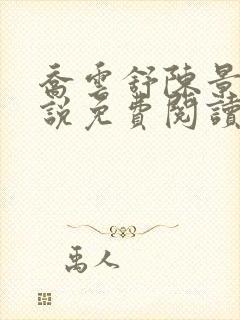 喬雲舒陳景
說免費閱讀
禹人